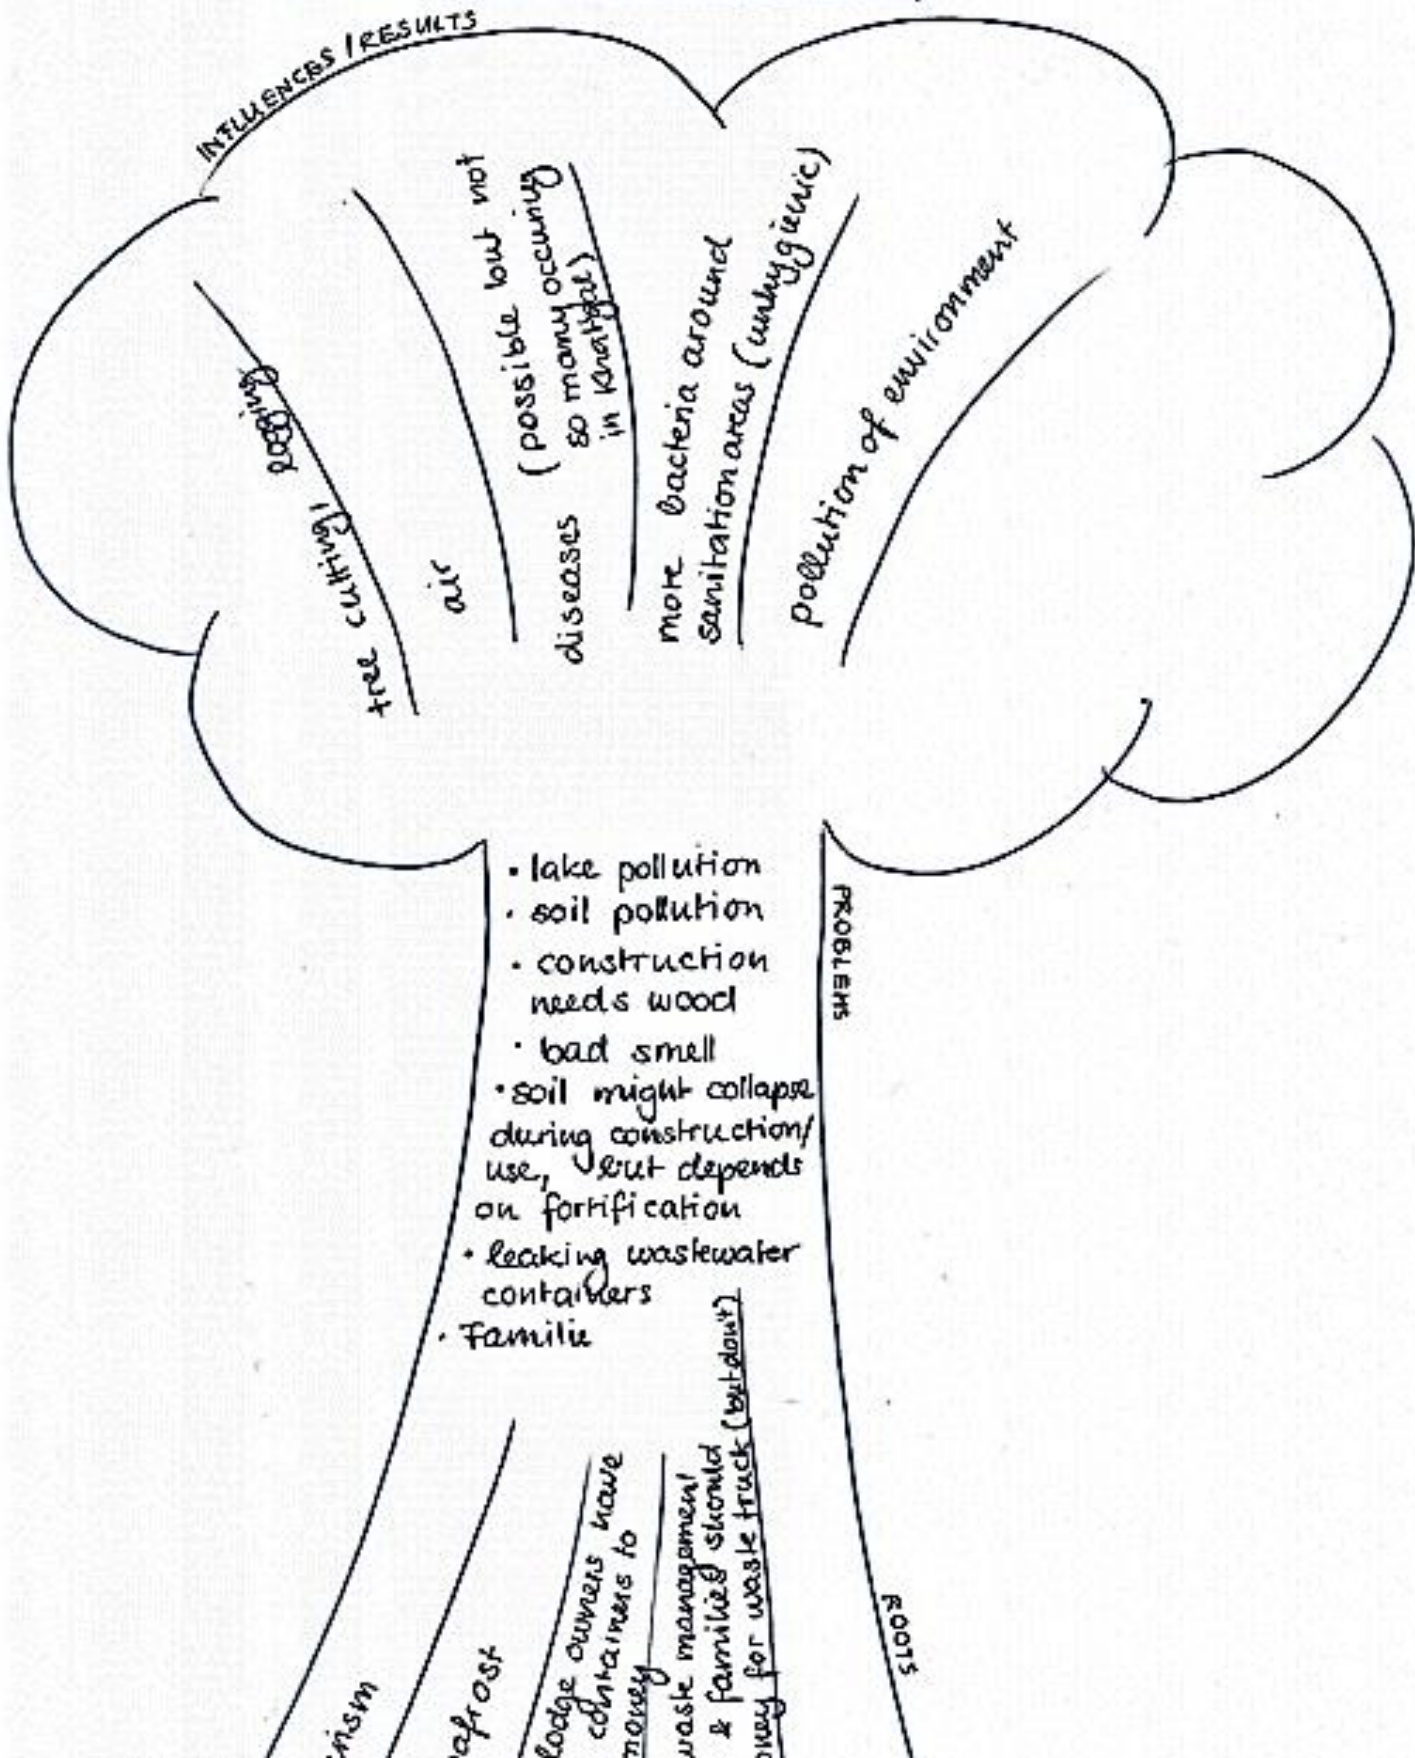 INFLUENCES / RESULTS
tree cutting!
logging
air
diseases
(possible but not
so many occuring
in Khatgal)
more bacteria around
sanitation areas (unhygienic)
pollution of environment
PROBLEMS
· lake pollution
· soil pollution
· construction
needs wood
· bad smell
· soil might collapse
during construction/
use, but depends
on fortification
· leaking wastewater
containers
· Familie
ROOTS
rism
afrost
lodge owners have
containers to
money
waste management
& families should
oney for waste truck (but don't)